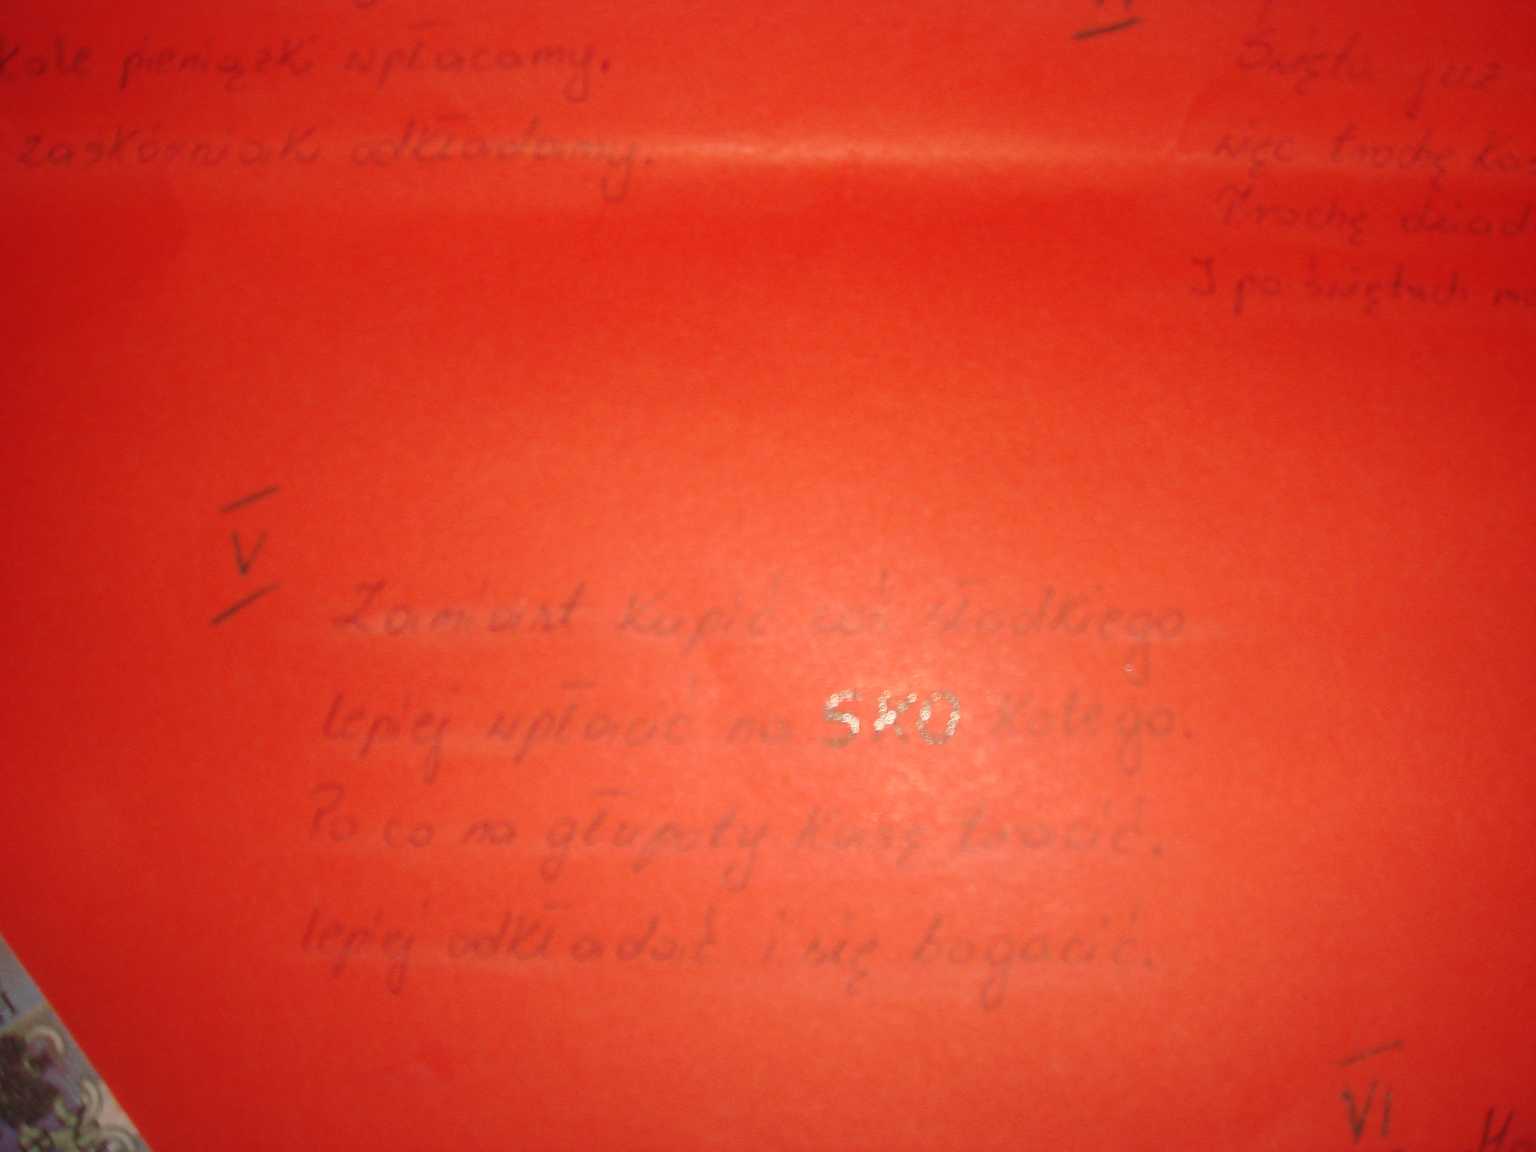 pieniążki wpłacamy.
zaskórniaki odkładamy.
Święta już
więc trochę
Trochę
I po świętach
V
Zamiast kupić coś słodkiego
lepiej wpłacić na SKO kolego.
Po co na głupoty kasę tracić,
lepiej odkładać i się bogacić.
VI